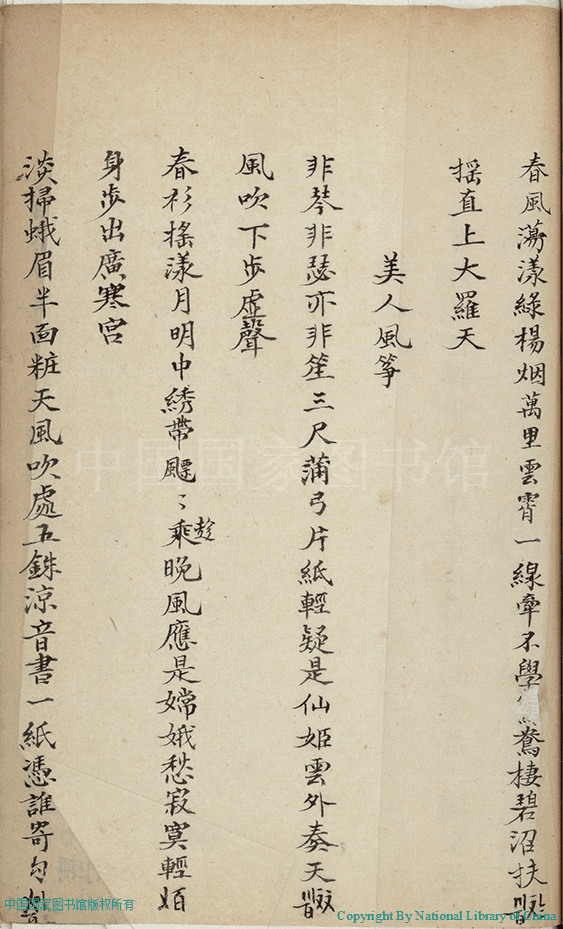 春風蕩漾綠楊烟萬里雲霄一線牽不學鴛棲碧沼扶
搖直上大羅天
美人風箏
非琴非瑟亦非笙三尺蒲弓片紙輕疑是仙姬雲外奏天
風吹下步虛聲
春衫搖漾月明中綉帶飃〻乘趁晚風應是嫦娥愁寂寞輕
身步出廣寒宮
淡掃蛾眉半面粧天風吹處五銖涼音書一紙憑誰寄勻
中国国家图书馆
中国国家图书馆版权所有
Copyright By National Library of China